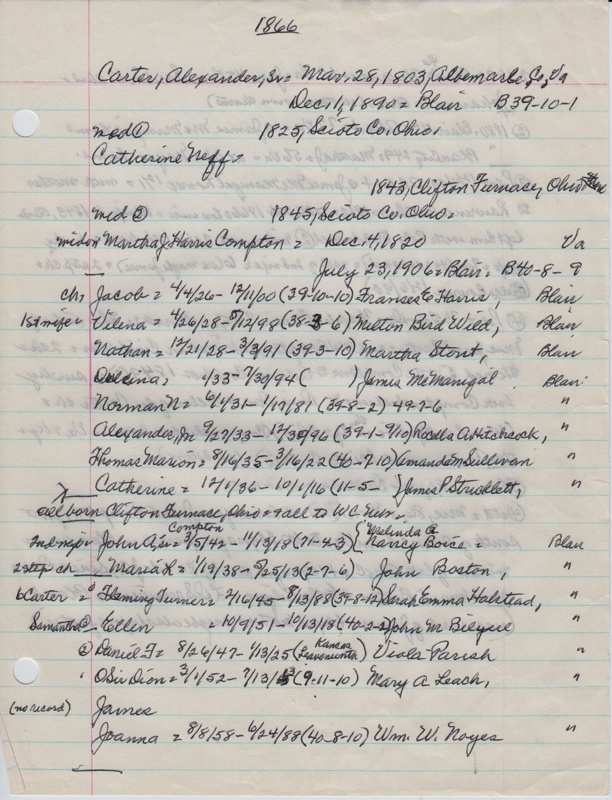 1866
Carter, Alexander, Sr. = Mar. 28, 1803, Albemarle Co, Va
Dec. 1, 1890 = Blair B39-10-1
med ① 1825, Scioto Co. Ohio.
Catherine Neff =
1843, Clifton Furnace, Ohio
med ② 1845, Scioto Co. Ohio.
widow Martha J. Harris Compton = Dec. 4, 1820 Va
July 23, 1906 = Blair. B40-8-9
ch. Jacob = 4/4/26 - 12/11/00 (39-10-10) Franses E Harris, Blair
1st wife = Vilena = 4/26/28 - 5/12/98 (38-3-6) Melton Bird Wild, Blair
Nathan = 12/21/28 - 3/3/91 (39-3-10) Martha Stout, Blair
Delcina = 4/33 - 7/30/94 ( ) James McManigal Blair
Norman N = 6/1/31 - 1/17/81 (39-8-2) 49-7-6 "
Alexander, Jr 9/27/33 - 12/30/96 (39-1-9/10) Rocella A Hitchcock, "
Thomas Marion = 8/16/35 - 3/16/22 (40-7-10) Amanda M Sullivan "
Catherine = 12/1/36 - 10/1/16 (11-5- ) James P Stricklett, "
all born Clifton Furnace, Ohio = all to W.C. Nebr.
Compton { Malinda C.
2nd wife John A, Sr. = 3/5/42 - 11/13/18 (71-4-3) { Nancy Boice = Blair
2 step ch Maria K = 1/19/38 - 5/25/13 (2-7-6) John Boston, "
b Carter = Fleming Turner = 2/16/45 - 8/13/88 (39-8-12) Sarah Emma Halstead, "
Samantha Ellen = 10/9/51 - 10/13/18 (40-2-2) John M Bilyeu "
Kansas
Daniel F = 8/26/47 - 7/13/25 (Leavenworth) Viola Parish "
OSir Dion = 3/1/52 - 7/13/ (9-11-10) Mary A Leach, "
(no record) James
Joanna = 8/8/58 - 6/24/88 (40-8-10) Wm. W. Noyes "